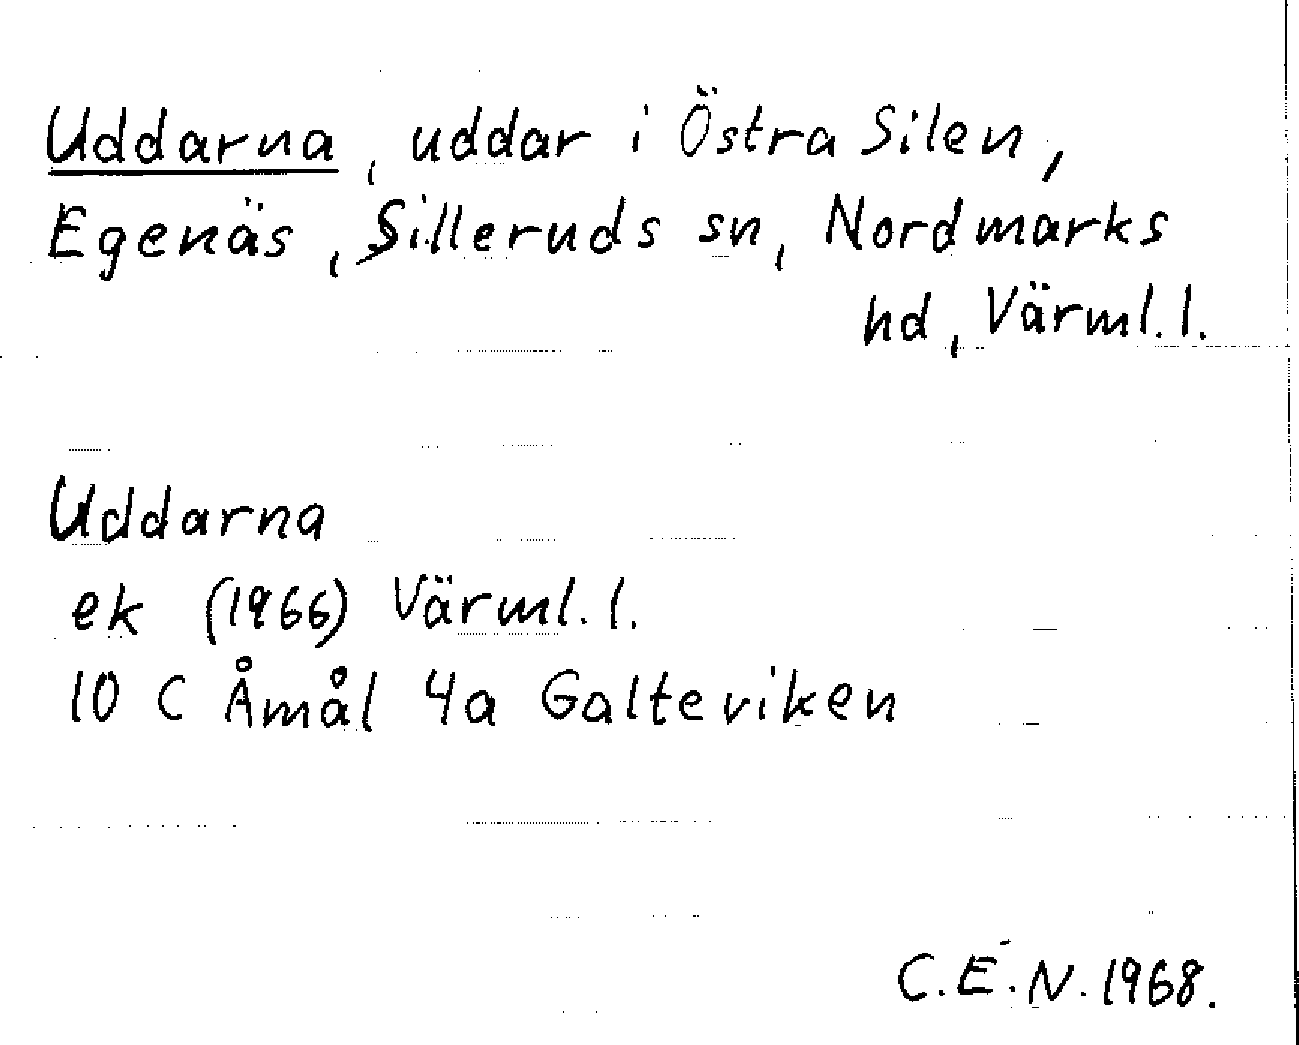 Uddarna, uddar i Östra Silen,
Egenäs, Silleruds sn, Nordmarks
hd, Värml. l.
Uddarna
ek (1966) Värml. l.
10 C Åmål 4a Galteviken
C.E.N. 1968.